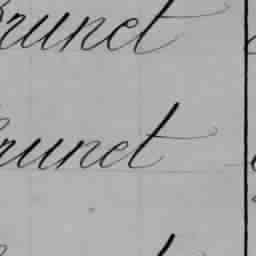 Brunet
Brunet